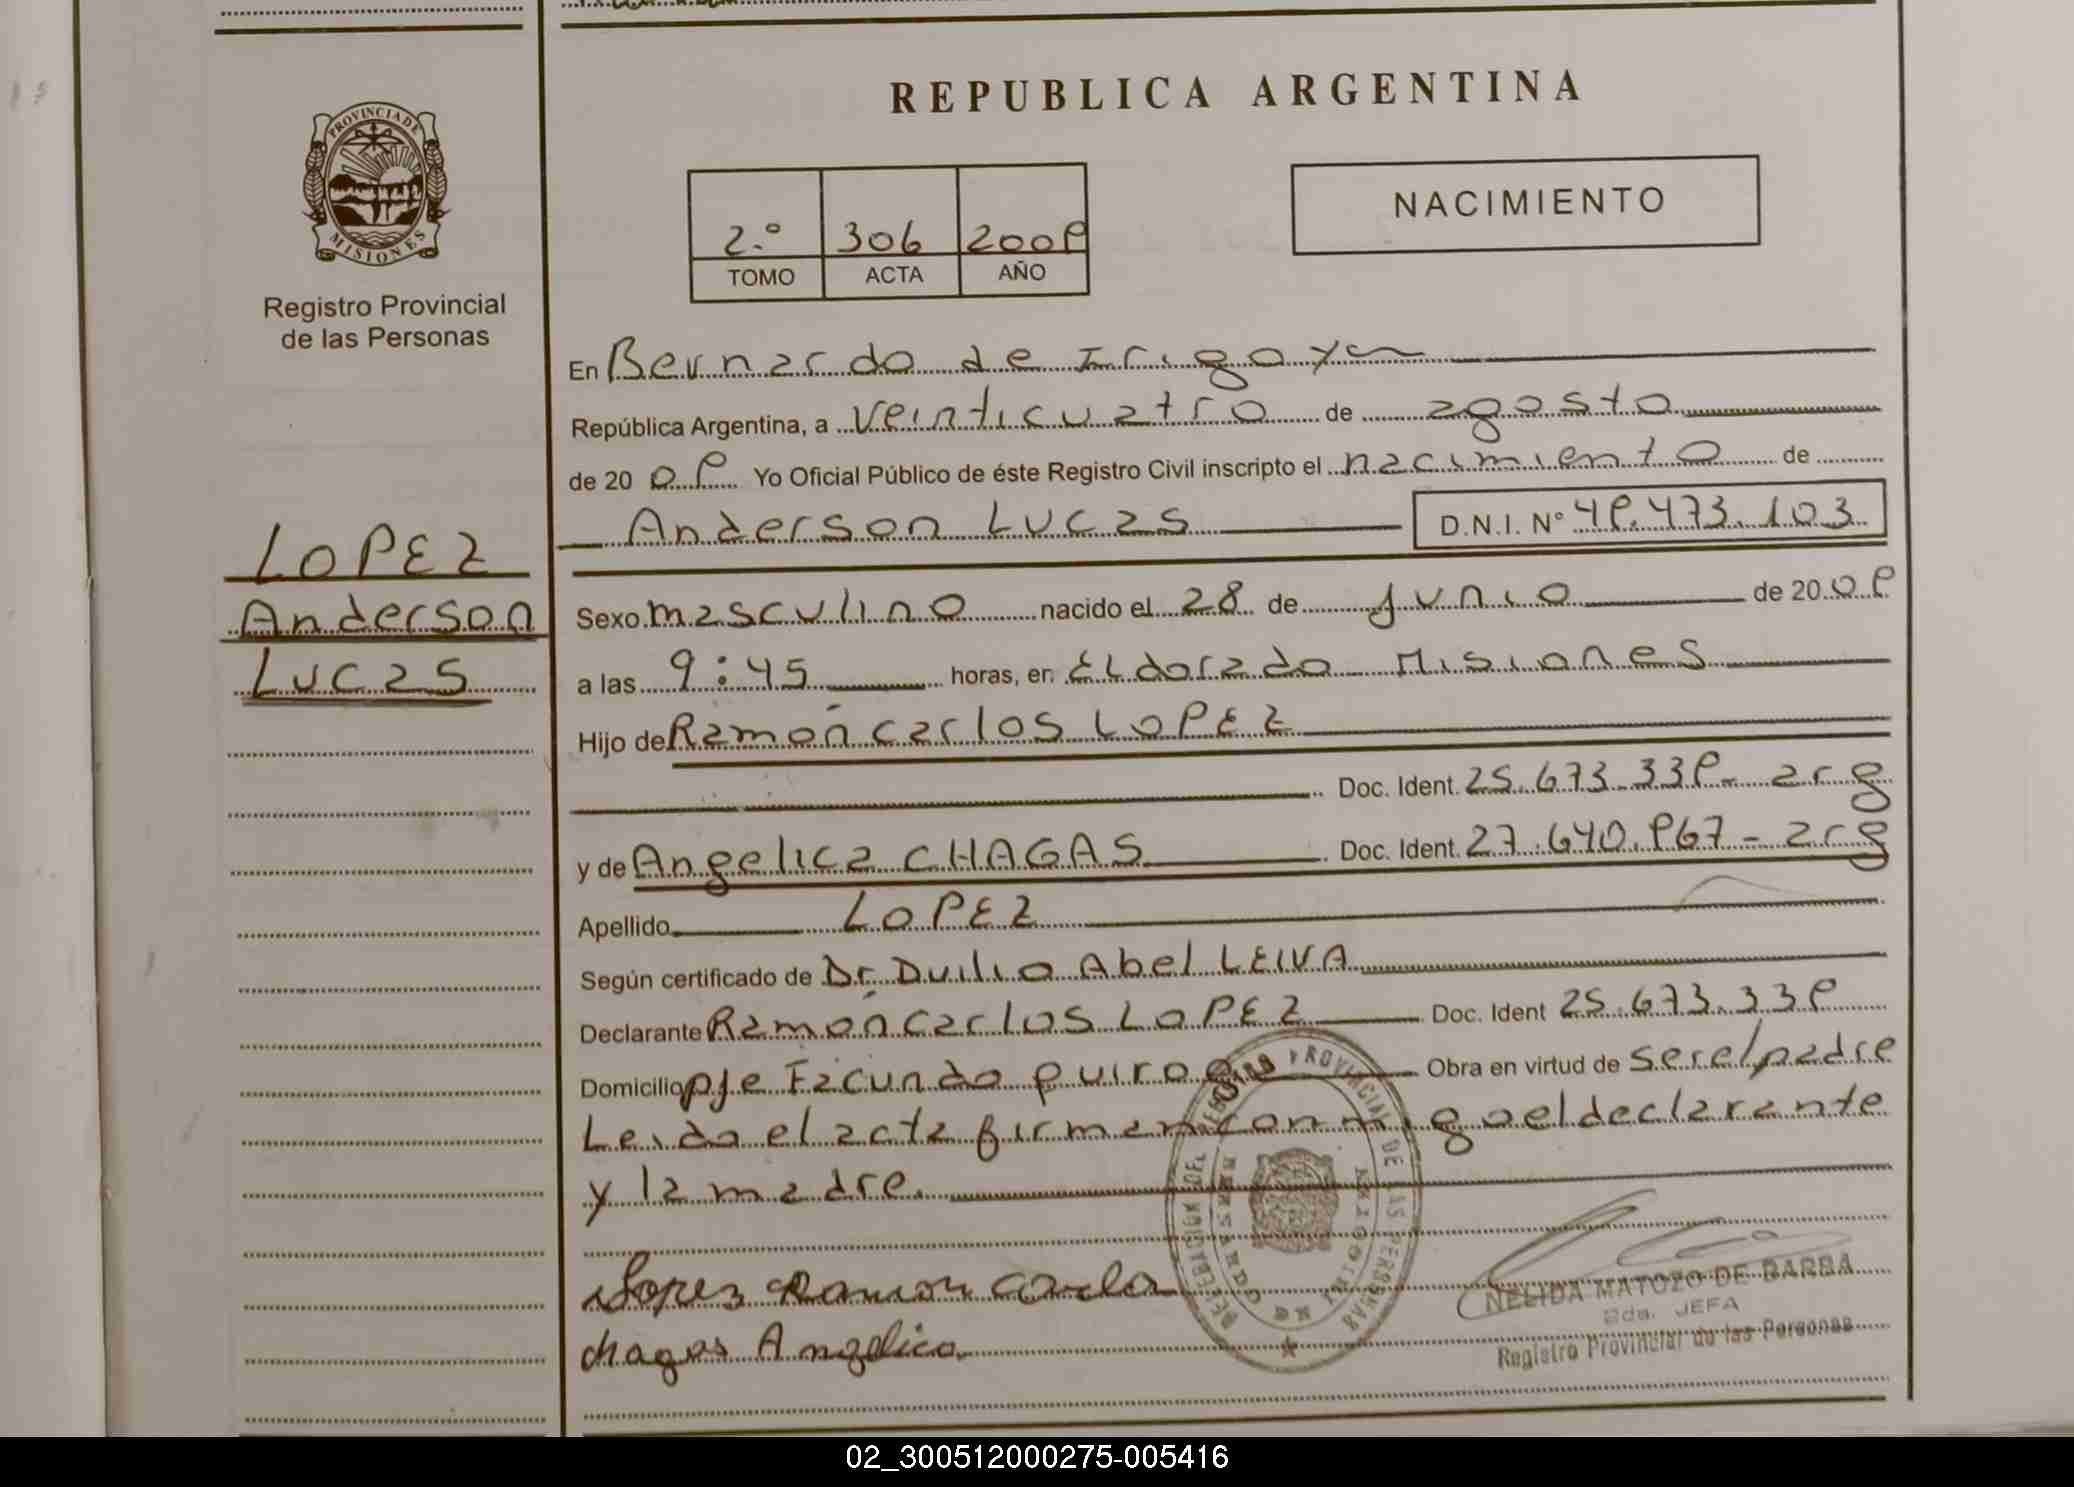 REPUBLICA ARGENTINA
PROVINCIA DE MISIONES
NACIMIENTO
2.º 306
TOMO ACTA AÑO
Registro Provincial
de las Personas
En Bernardo de Irigoyen
República Argentina, a veinticuatro de agosto
de 20 Yo Oficial Público de éste Registro Civil inscripto el nacimiento de
Anderson Lucas D.N.I. Nº
LOPEZ
Anderson
Lucas
Sexo masculino nacido el 28 de Junio de 20
a las 9:45 horas, en Eldorado Misiones
Hijo de Ramón Carlos LOPEZ
Doc. Ident. arg
y de Angelica CHAGAS Doc. Ident. arg
Apellido LOPEZ
Según certificado de Dr. Duilio Abel LEIVA
Declarante Ramón Carlos LOPEZ Doc. Ident
Domicilio pje Facundo quiroga Obra en virtud de ser el padre
Leida el acta firman conmigo el declarante
y la madre.
Lopez Ramon Carlos
chagas Angelica
NELIDA MATOZO DE BARBA
2da. JEFA
Registro Provincial de las Personas
02_300512000275-005416